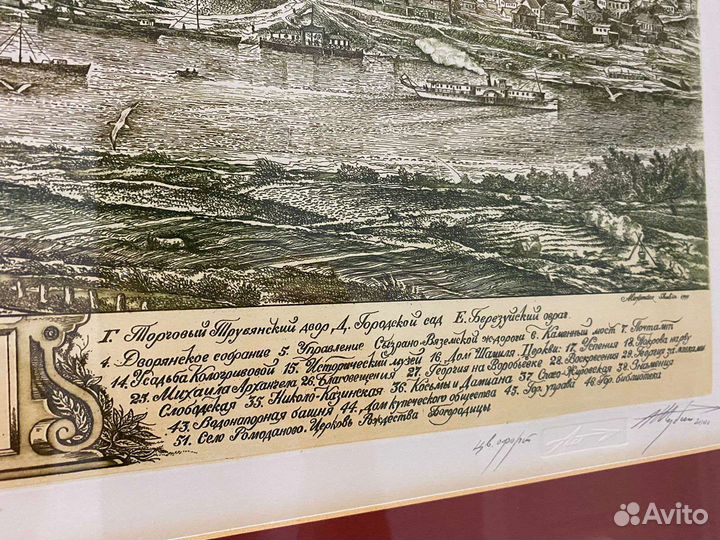 Г. Торговый Трубянский двор, Д. Городской сад Е. Березуйский овраг.
4. Дворянское собрание 5. Управление Сызрано Вяземской ж.дороги 6. Каменный мост 7. Почтамт
14. Усадьба Кологривовой 15. Исторический музей 16. Дом Шамиля. Церкви: 17. Успения 18. Покрова на рву
25. Михаила Архангела 26. Благовещения 27. Георгия на Воробьевке 28. Воскресения 29. Георгия за лавками
Слободская 35. Николо-Казинская 36. Косьмы и Дамиана 37. Спасо-Жировская 38. Знамения
43. Водонапорная башня 44. Дом купеческого общества 45. Гор. управа 46. Гор. библиотека
51. Село Ромоданово. Церковь Рождества Богородицы
цв. офорт
Avito